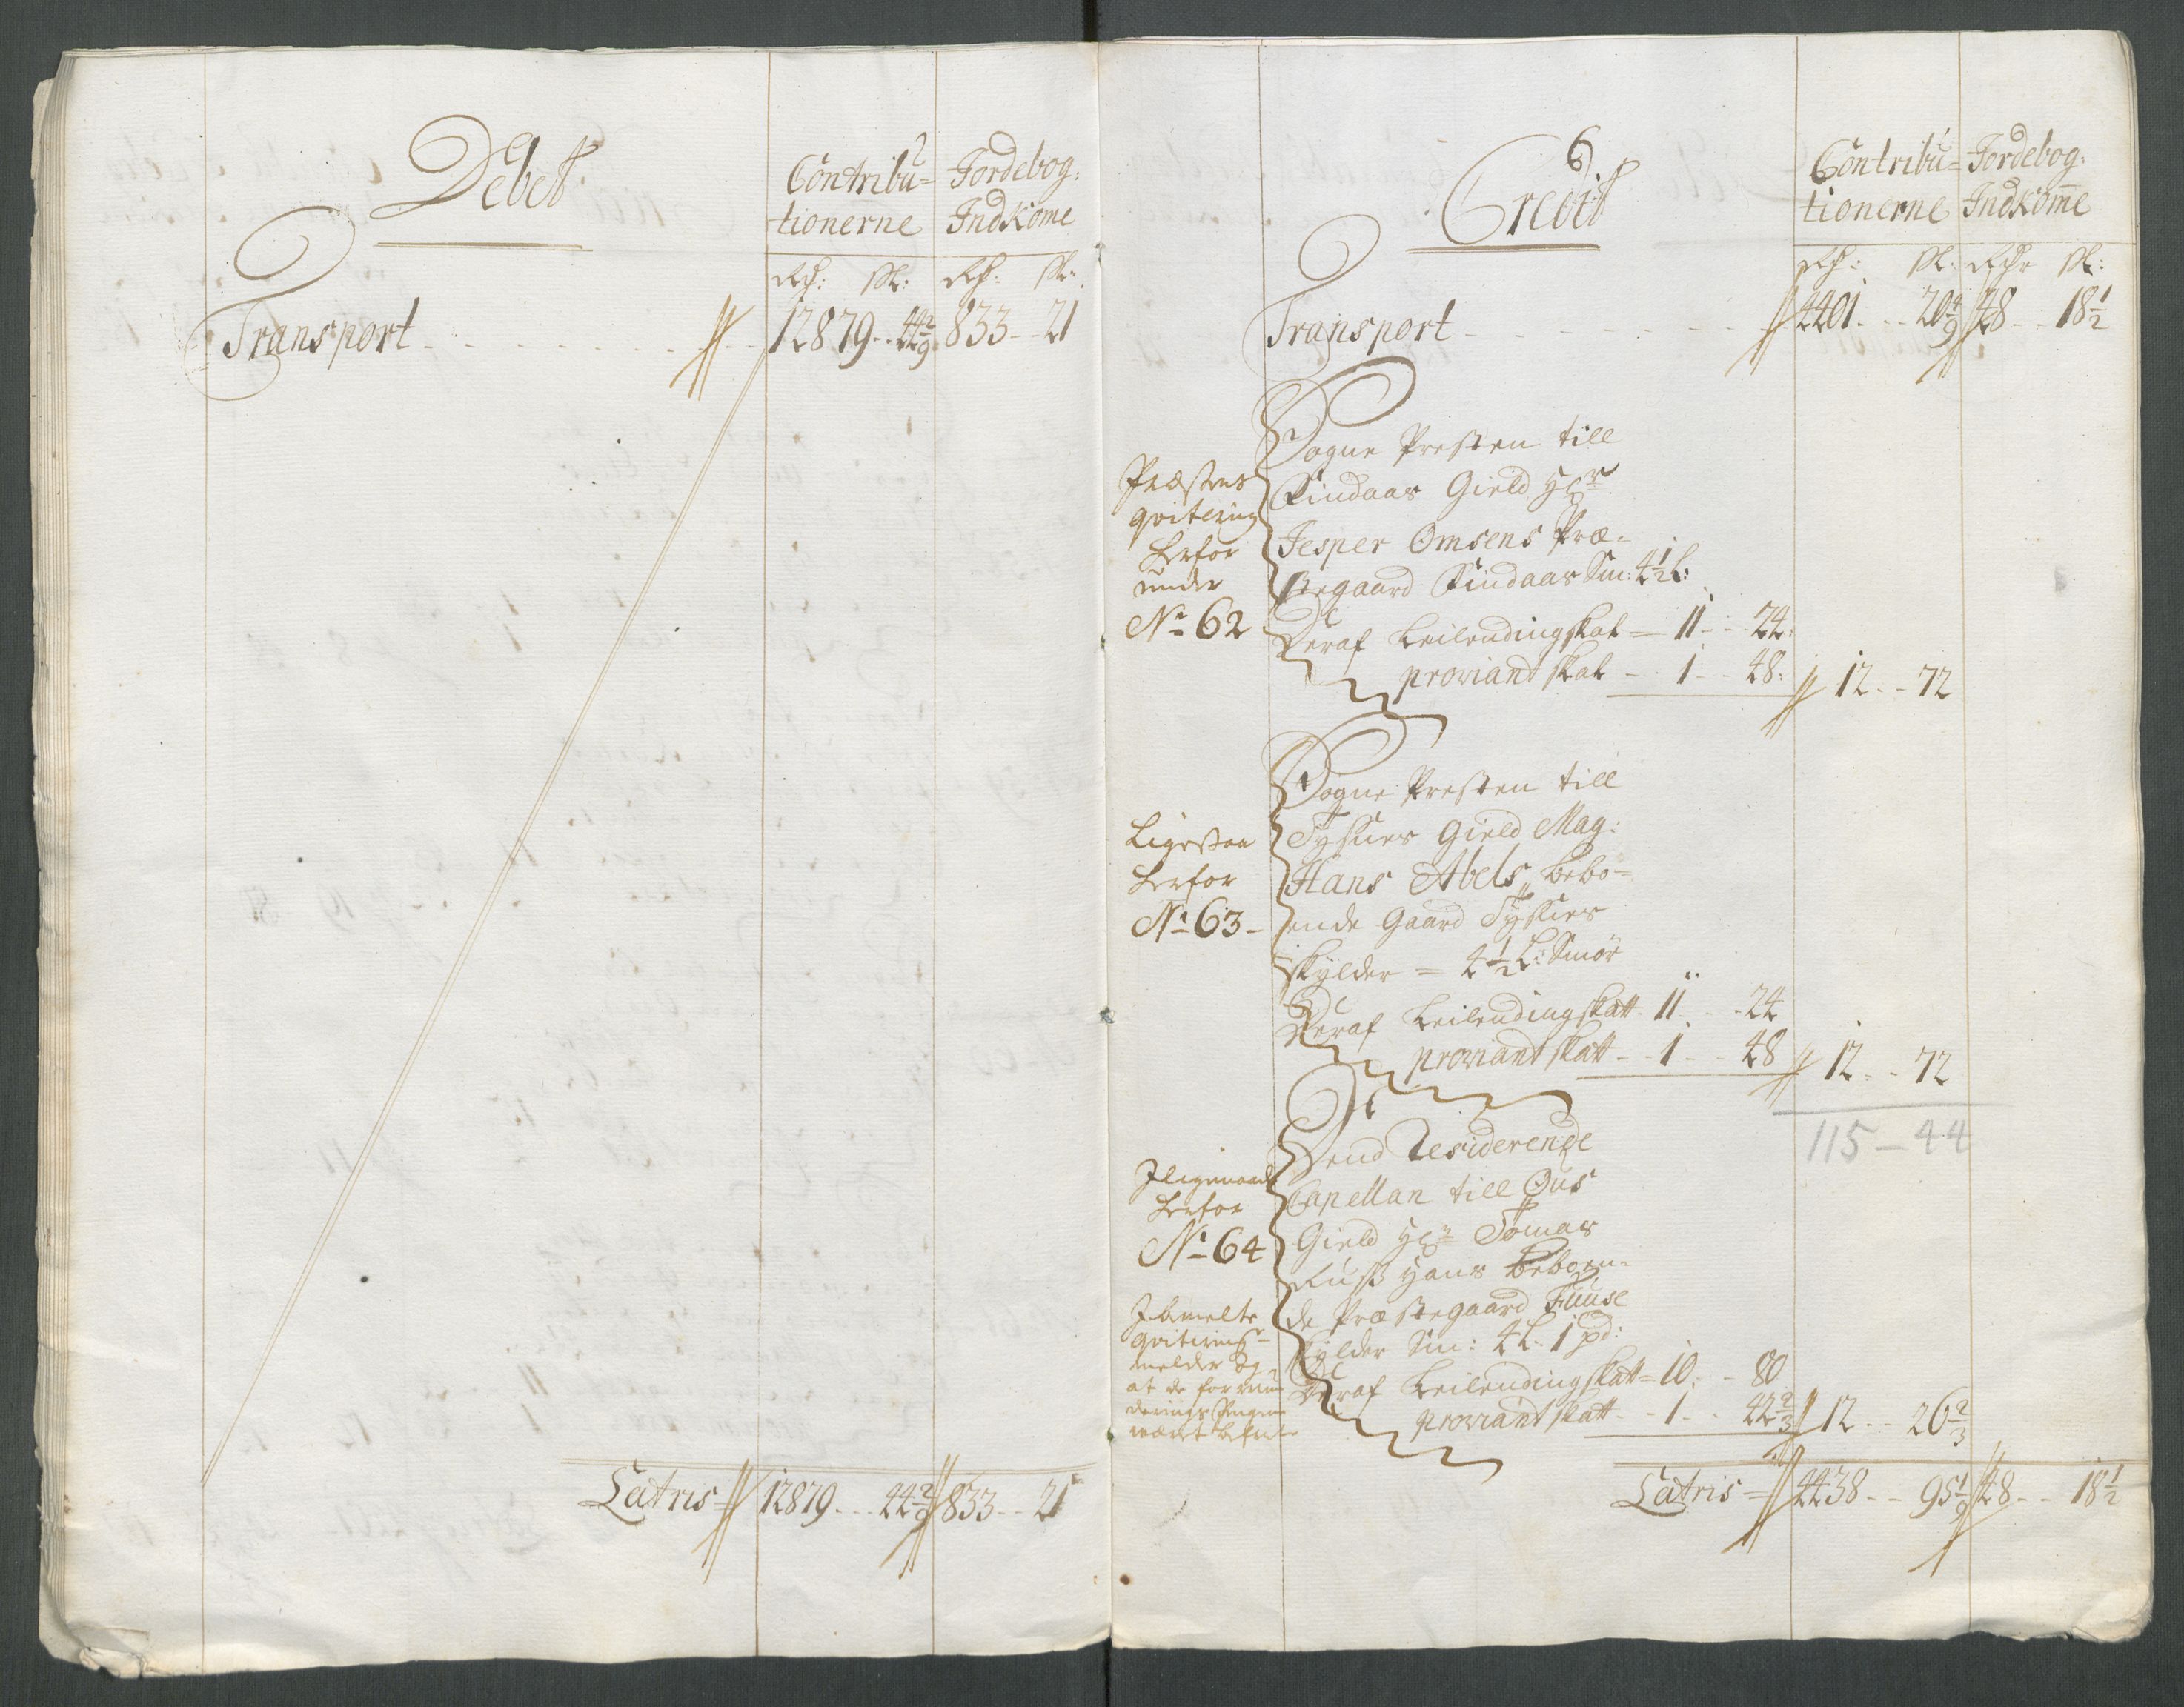 Debet
Contribu= Jordebog:
tionerne Indkome
Rd: sk: Rd: sk:
Transport 12879 - 44 2/9 833 - 21
Latris 12879 - 44 2/9 833 - 21
6
Credit
Contribu= Jordebog:
tionerne Indkome
Rd: sk: Rdr sk:
Transport 4401 - 20 4/9 48 - 18 1/2
Sogne Presten till
Findaas Gield Hr
Jesper Omsens Præ-
stegaard Findaas Sm: 4 1/2 L:
Deraf Leilendingskat = 11 - 24:
proviant skat - 1 - 48: 12 - 72
Præstens
qvitering
herfor
under
No 62
Sogne Presten till
Tysnes Gield Mag:
Hans Abels bebo=
ende Gaard Tysnes
skylder = 4 1/2 L: Smør
Deraf Leilendingskatt 11 - 24
proviant skatt - 1 - 48 12 - 72
115 - 44
Ligesaa
herfor
No 63 -
Dend Residerende
Capellan till Ous
Gield Hr Tomas
Hans beboen-
de Præstegaard Fuuse
skylder Sm: 4 L. 1 pd:
Deraf Leilendingskatt = 10 - 80
proviant skatt - 1 - 42 2/3 12 - 26 2/3
herfor
No 64
melder og
at de
Latris = 4438 - 95 1/9 48 - 18 1/2